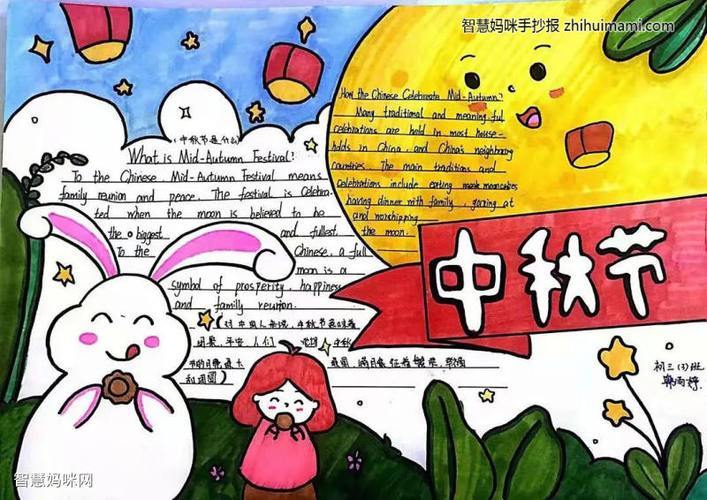 智慧妈咪手抄报 zhihuimami.com
(中秋节是什么)
What is Mid-Autumn Festival?
To the Chinese Mid-Autumn Festival means
family reunion and peace. The festival is Celebra-
ted when the moon is believed to be
the biggest and fullest.
To the Chinese, a full
moon is a
symbol of prosperity, happiness
and family reunion.
(对中国人来说,中秋节意味着
团聚,平安
中秋
节的月亮最大
最圆 满月象征着繁荣,幸福
和团圆)
How the Chinese Celebrate Mid-Autumn?
Many traditional and meaningful
celebrations are held in most house-
holds in China, and China's neighboring
countries. The main traditions and
celebrations include eating mooncakes
having dinner with family, gazing at
and worshipping
the moon.
中秋节
初三(3)班
智慧妈咪网